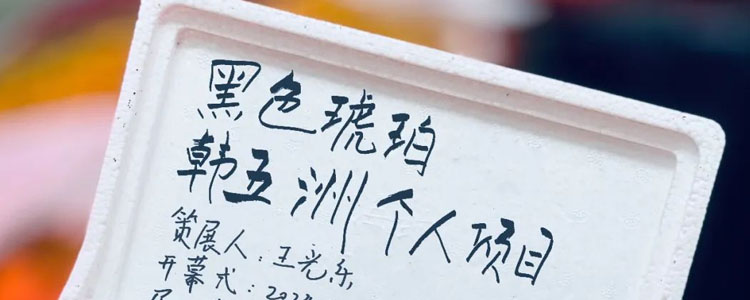 黑色琥珀
韩五洲个人项目
策展人：王光乐
开幕式：202